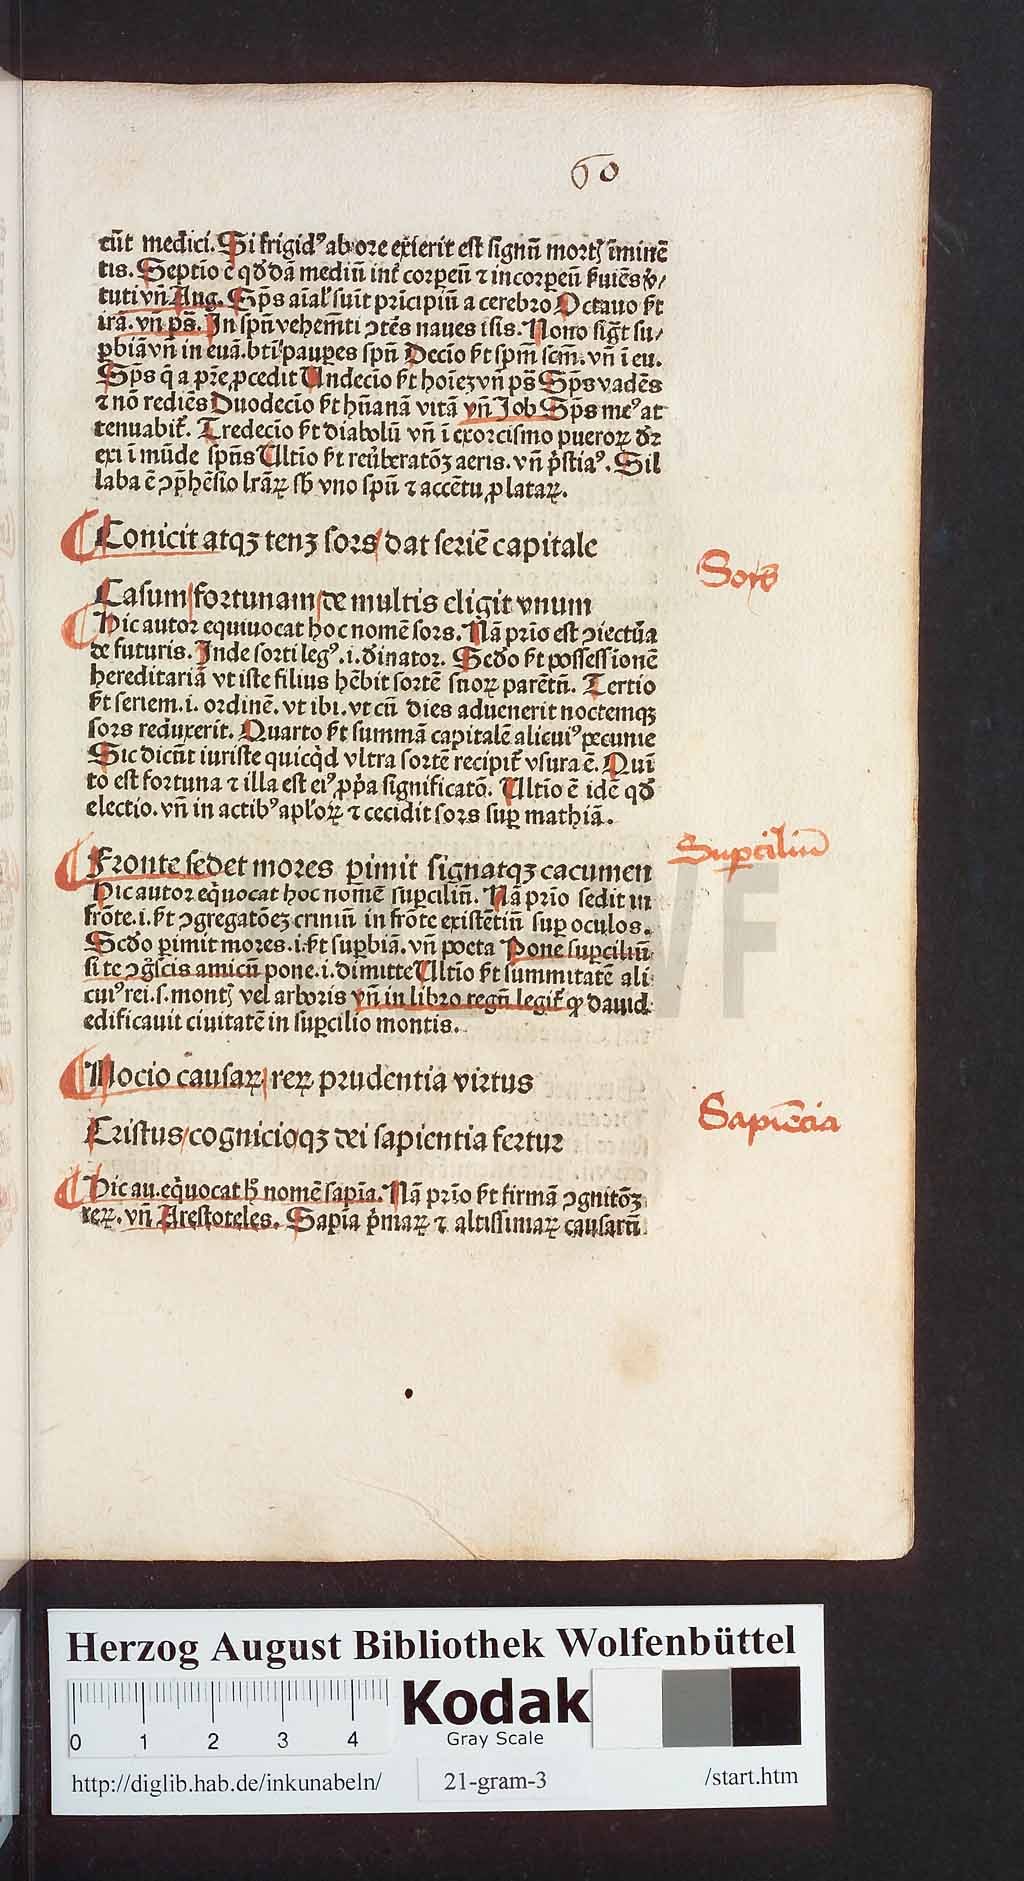 60
cūt medici. Si frigidꝰ ab ore exierit est signū mortꝭ īminē
tis. Septīo ē qđdā mediū int̄ corpeū ⁊ incorpeū ẜuiēs v̓/
tuti vn̄ Aug. Sp̄s aīal' suīt prīcipiū a cerebro Octauo ẜt
irā. vn̄ ps̄. In spū vehemēti ↄtēs naues isis. Nono sigt̄ su/
ꝑbiā vn̄ in euā. bti' pauꝑes spū Decīo ẜt spm̄ scm̄. vn̄ ī eu.
Sp̄s q̄ a pr̄e ꝓcedit Undecīo ẜt hoīeꝫ vn̄ ps̄ Sp̄s vadēs
⁊ nō rediēs Duodecīo ẜt hūanā vitā vn̄ Job Sp̄s meꝰ at
tenuabit̄. Tredecīo ẜt diabolū vn̄ ī exorcismo pueroꝝ dr̄
exi īmūde spūs Ultīo ẜt reūberatōꝫ aeris. vn̄ p̓stiaꝰ. Sil
laba ē ↄp̄hēsio lr̄aꝝ sb̄ vno spū ⁊ accētu ꝓlataꝝ.
Conicit atqꝫ tenꝫ sors/ dat seriē capitale
Sors
Casum/ fortunam/ de multis eligit vnum
Hic autor equiuocat hoc nomē sors. Nā prīo est ↄiectūa
de futuris. Inde sorti legꝰ .i. d̄inator. Scd̄o ẜt possessionē
hereditariā vt iste filius hēbit sortē suoꝝ parētū. Tertio
ẜt seriem .i. ordinē. vt ibi. vt cū dies aduenerit noctemqꝫ
sors reduxerit. Quarto ẜt summā capitalē alicuiꝰ pecunie
Sic dicūt iuriste quicq̓d vltra sortē recipit̄ vsura ē. Quī
to est fortuna ⁊ illa est eiꝰ ꝓp̓a significatō. Ultīo ē idē qđ
electio. vn̄ in actibꝰ apl'oꝝ ⁊ cecidit sors suꝑ mathiā.
Suꝑciliū
Fronte sedet mores ꝑimit signatqꝫ cacumen
Hic autor eq̓uocat hoc nomē suꝑciliū. Nā prīo sedit in
frōte .i. ẜt ↄgregatōeꝫ criniū in frōte existētiū suꝑ oculos.
Scd̄o ꝑimit mores .i. ẜt suꝑbiā. vn̄ poeta Pone suꝑciliū
si te ↄg̓scis amicū pone .i. dimitte Ultīo ẜt summitatē ali
cuiꝰ rei .s. montꝭ vel arboris vn̄ in libro regū legit̄ ꝙ dauid
edificauit ciuitatē in suꝑcilio montis.
Nocio causaꝝ/ reꝝ prudentia virtus
Sapiēcia
Cristus/ cognicioqꝫ dei sapientia fertur
Hic au. eq̓uocat hͦ nomē sapīa. Nā prīo ẜt firmā ↄgnitōꝫ
reꝝ. vn̄ Arestoteles. Sapīa p̓maꝝ ⁊ altissimaꝝ causarū
Herzog August Bibliothek Wolfenbüttel
Kodak
Gray Scale
0 1 2 3 4
http://diglib.hab.de/inkunabeln/ 21-gram-3 /start.htm